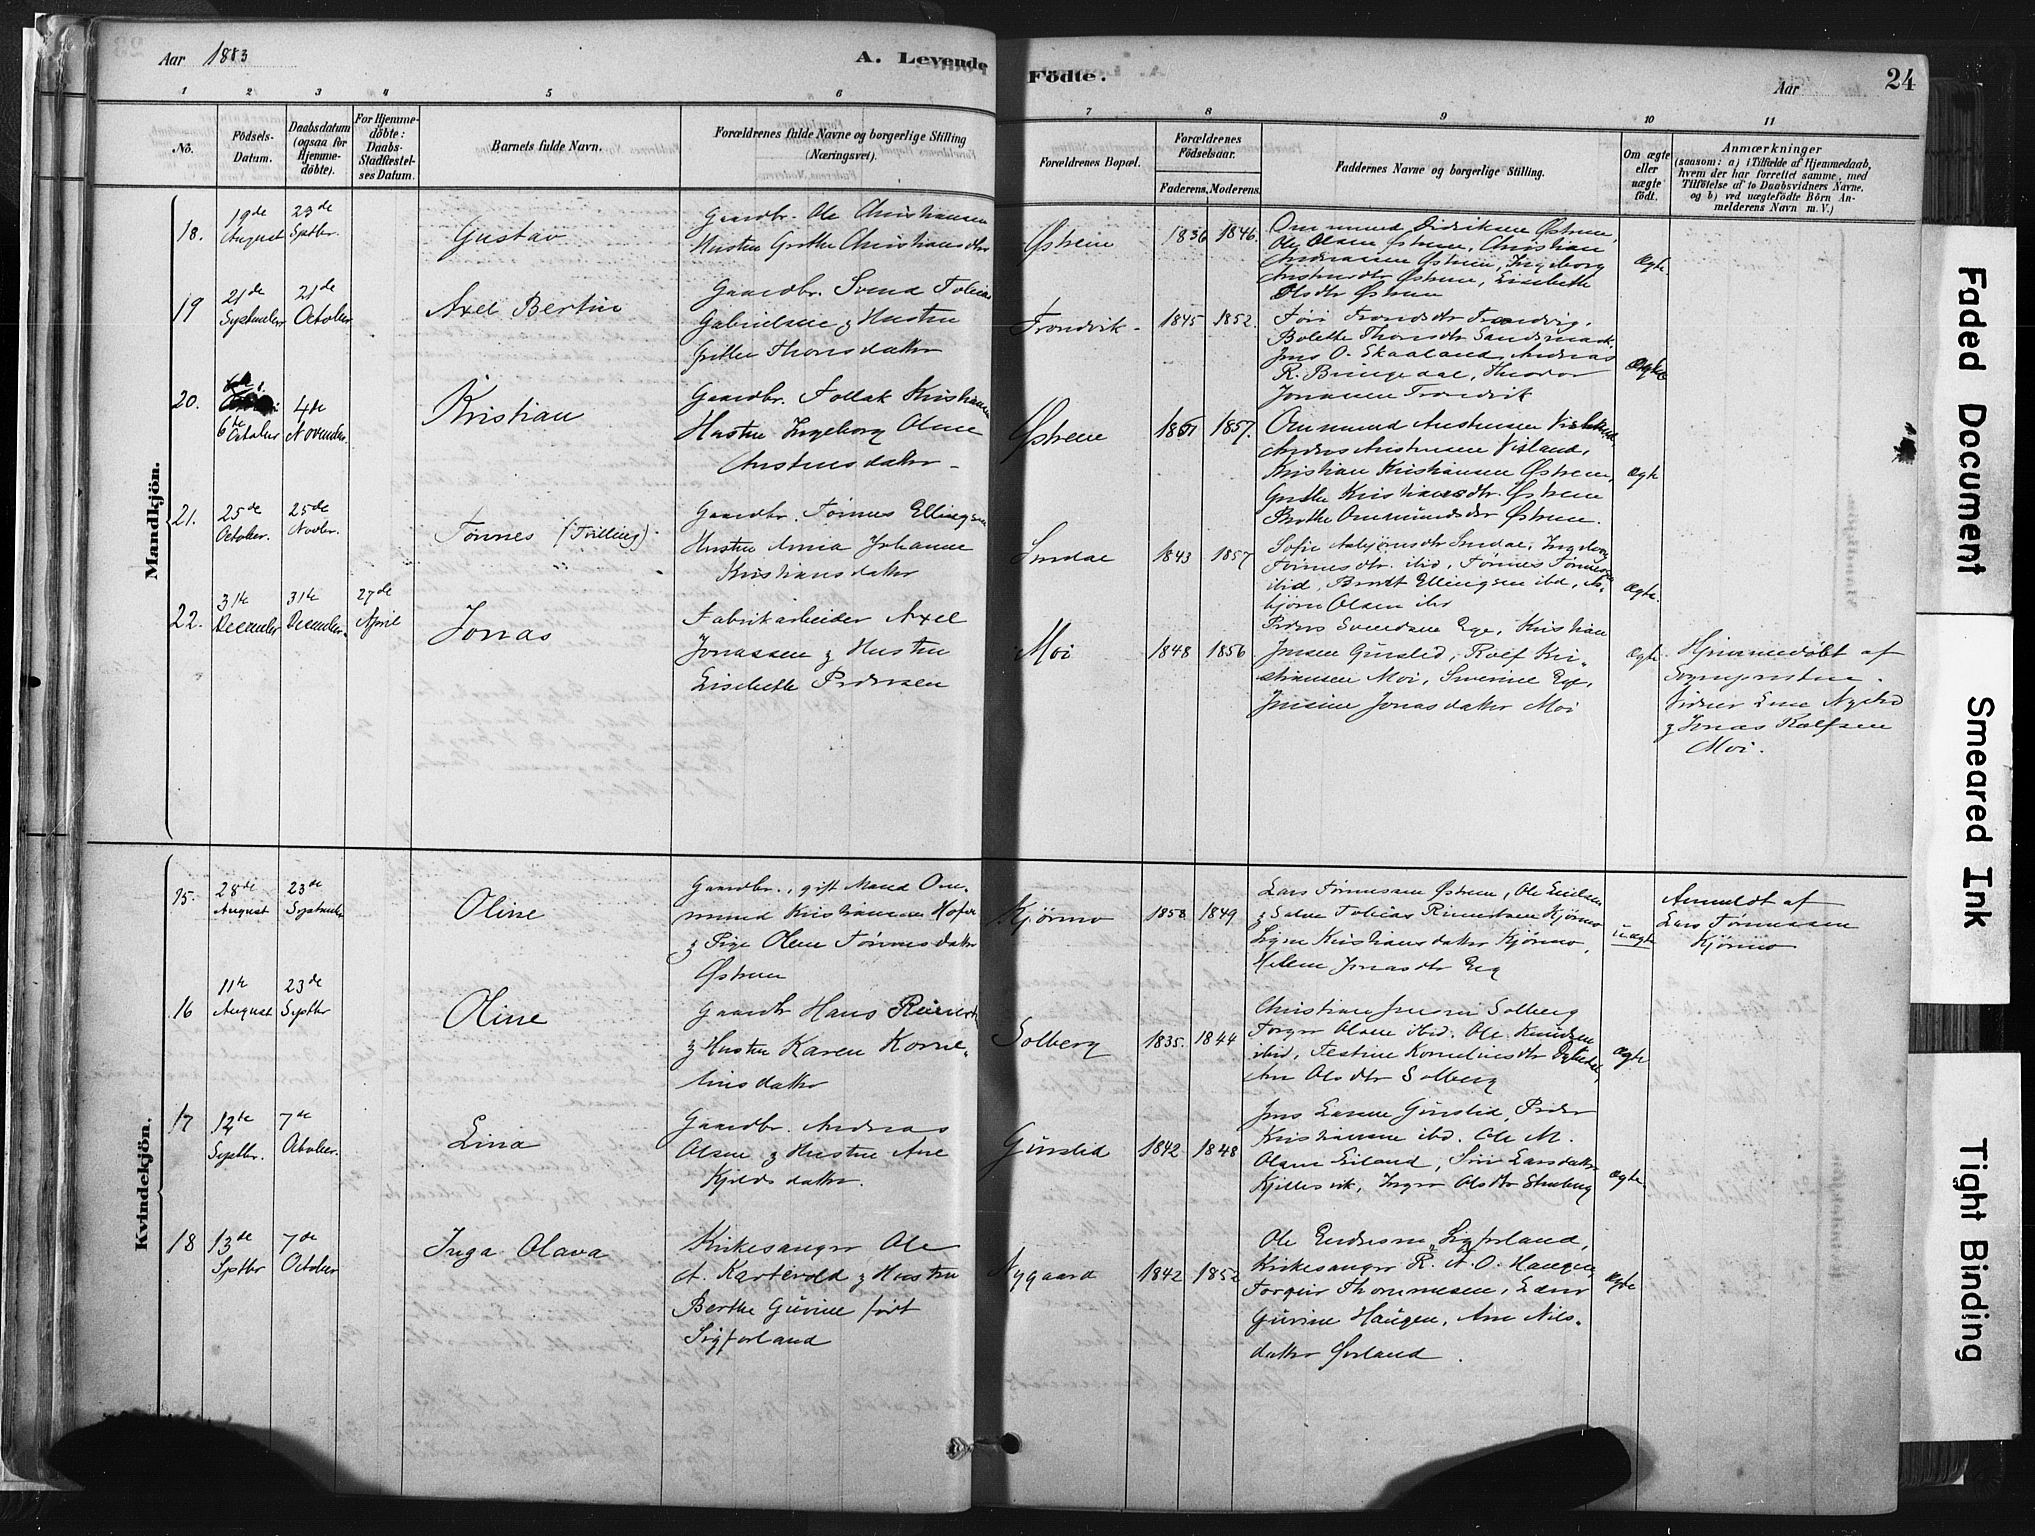 Aar 1883
A. Levende Födte.
Aar
24
1 2 3 4 5 6 7 8 9 10 11
No.
Födsels-
Datum.
Daabsdatum
(ogsaa for
Hjemme-
döbte).
For Hjemme-
döbte:
Daabs-
Stadfæstel-
ses Datum.
Barnets fulde Navn.
Forældrenes fulde Navne og borgerlige Stilling
(Næringsvei).
Forældrenes Bopæl.
Forældrenes
Födselsaar.
Faderens. Moderens.
Faddernes Navne og borgerlige Stilling.
Om ægte
eller
uægte
födt.
Anmærkninger
(saasom: a) i Tilfælde af Hjemmedaab,
hvem der har forrettet samme, med
Tilföielse af to Daabsvidners Navne,
og b) ved uægtefödte Börn An-
melderens Navn m. V.)
Mandkjön.
18.
19de
August
23de
Septbr.
Gustav
Gaardbr. Ole Christiansen
Hustru Grethe Christiansdtr
Østrem
1836 1846.
Ommund Didriksen Østrem,
Ole Olsen Østrem, Christian
Andreassen Østrem, Ingeborg
Østrem, Lisebette
Olsdtr Østrem
Ægte.
19
21de
Septemb​er
21de
October
Axel Bertin
Gaardbr. Svend Tobias
Gabrielsen & Hustru
Thorsdatter
Trondvik
1845 1852.
Trondsdtr Trondvig,
Bolette Thorsdtr Sandsmark,
Jens O. Skaaland, Andreas
R. Bringedal, Theodor
Jonassen Trondvik
Ægte
20.
6te October
4de
November.
Kristian
Gaardbr. Tollak Kristiansen
Hustru Ingeborg Oline
Østrem
1857.
Ommund
Anders Visland,
Kristian Kristiansen Østrem,
Grethe Kristiansdtr. Østrem
Berthe Ommundsdtr Østrem.
Ægte
21.
25de
October.
25de
Novbr.
Tønnes (Tvilling).
Gaardbr. Tønnes Ellingsen
Hustru Anna Johanne
Kristiansdatter
1843 1857
Sofie Asbjørnsdtr Ingeborg
Tønnesdtr. ibid, Tønnes Tønnesen
ibid, Berndt Ellingsen ibd, As-
bjørn Olsen ibd
Ægte.
22.
31te
December
31te
December.
27de
April
Jonas
Fabrikarbeider Axel
Jonassen & Hustru
Lisebette Pedersen
Moi
1848 1856
Peders Svendsen Ege, Kristian
Jensen Gursled, Rolf Kri-
stiansen Moi, Severine Ege,
Jensine Jonasdatter Moi
Ægte
Hjemmedøbt af
Sognepresten.
Vidner Lene
& Jonas Rolfsen
Moi.
Kvindekjön.
15.
28de
August
23de
September
Oline
Gaardbr., gift Mand Om-
mund Kristiansen
& Pige Olene Tønnesdatter
Østrem
Kjørmo
1858 1849
Lars Tønnessen Østrem, Ole
& Salve Tobias Kjørmo
Kristiansdatter Kjørmo,
Helene Jonasdtr Eeg
uægte
Anmeldt af
Lars Tønnessen
Kjørmo
16
11te
August
23de
Septbr
Oline
Gaardbr Hans
& Hustru Karen Korne-
liusdatter
Solberg
1835. 1844
Christian Jensen Solberg
Torger Olsen ibid. Ole Knudsen
ibid, Testine Korneliusdtr
Ane Olsdtr Solberg
Ægte
17
12te
Septbr.
7de
October.
Lina
Gaardbr. Andreas
Olsen & Hustru Ane
Kjeldsdatter.
Gursled
1842 1848
Jens Larsen Gursled, Peder
Kristiansen ibd. Ole M.
Olsen Eiland, Siri Larsdatter
Kjellesvik, Inger Olsdtr
Ægte.
18
13de
Septbr
7de
October
Inga Olava
Kirkesanger Ole
A. Kartevold & Hustru
Berthe Gurine født
Sigforland
Nygaard
1842 1852
Ole Endresen Sigforland,
Kirkesanger R. A. O. Haugen,
Torgeir Thommesen,
Gurine Haugen, Ane Nils-
datter Ørsland.
Ægte
Faded Document
Smeared Ink
Tight Binding